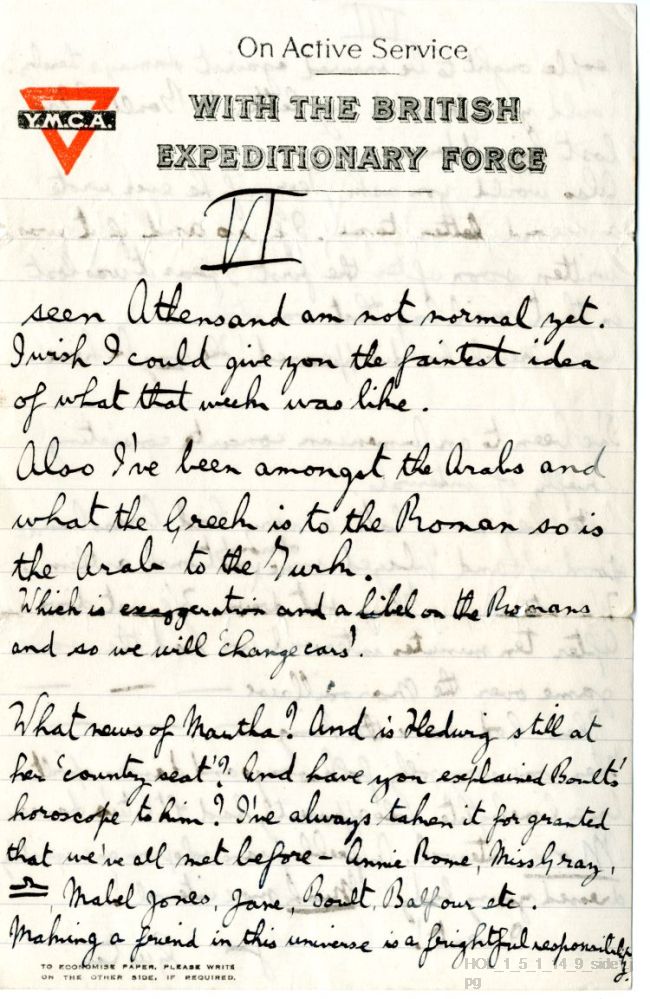 On Active Service
Y.M.C.A.
WITH THE BRITISH
EXPEDITIONARY FORCE
VI
seen Athens and am not normal yet.
I wish I could give you the faintest idea
of what that week was like.
Also I've been amongst the Arabs and
what the Greek is to the Roman so is
the Arab to the Turk.
Which is exaggeration and a libel on the Romans
and so we will 'change cars'.
What news of Martha? And is Hedwig still at
her 'country seat'? And have you explained Boult's
horoscope to him? I've always taken it for granted
that we've all met before – Annie Rome, Miss Gray,
♎, Mabel Jones, Jane, Boult, Balfour etc.
Making a friend in this universe is a frightful responsibility.
TO ECONOMISE PAPER, PLEASE WRITE
ON THE OTHER SIDE, IF REQUIRED.